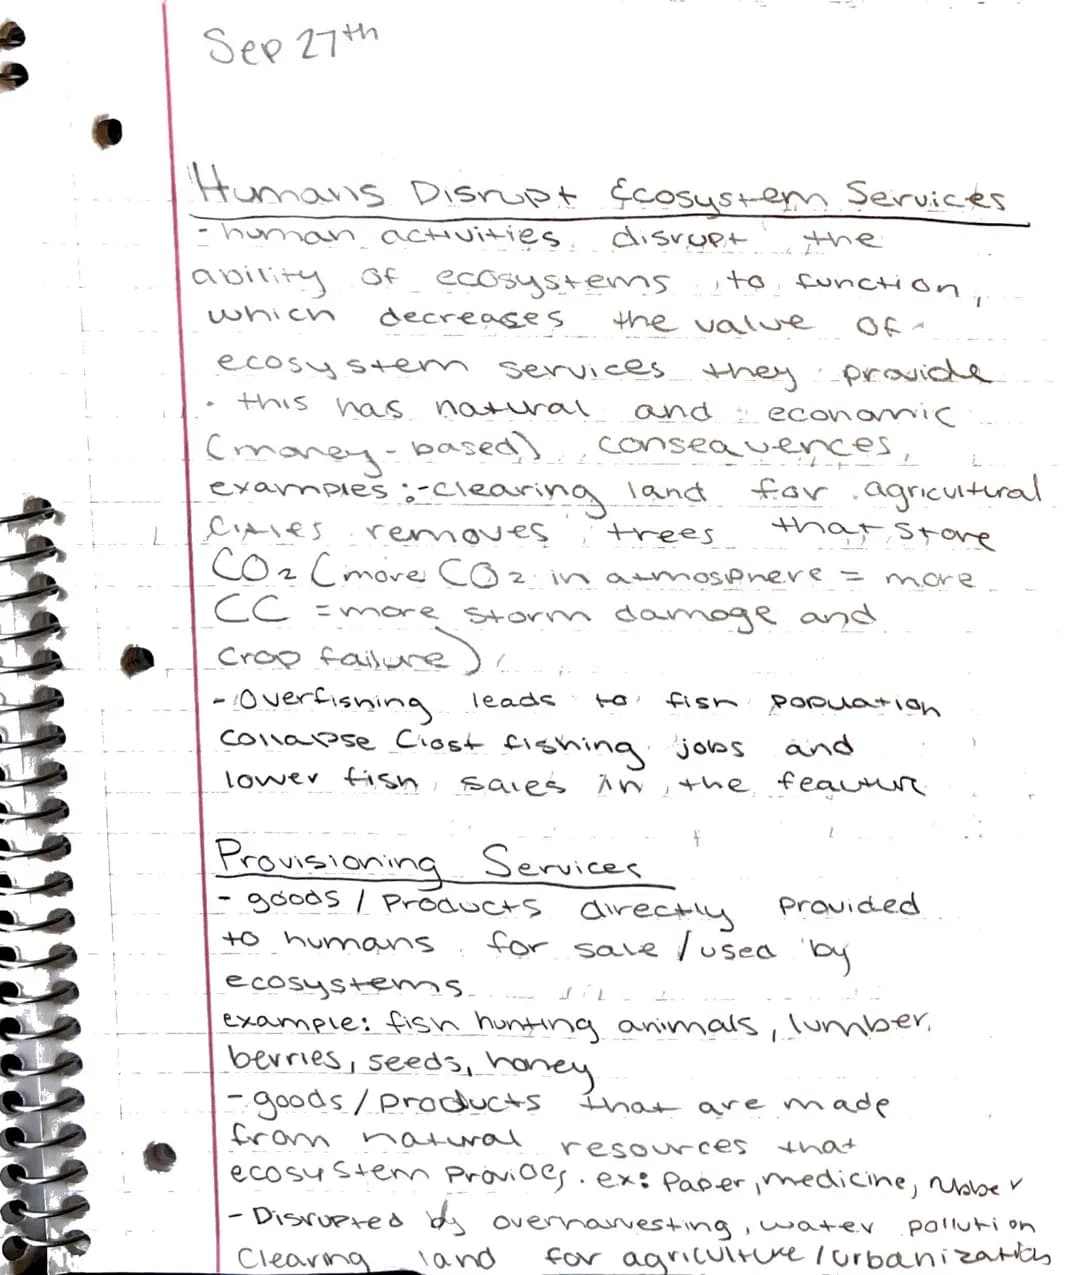 Sep 27th
Humans Disrupt Ecosystem Services
- human activities disrupt the
ability of ecosystems to function,
which decreases the value of
ecosystem services they provide
• this has natural and economic
(money-based) consequences,
examples:-clearing land for agricultural
cities removes trees that store
CO2 (more CO2 in atmosphere = more
CC = more storm damage and
crop failure)
- Overfishing leads to fish population
collapse (lost fishing jobs and
lower fish sales in the feauture
Provisioning Services
- goods / products directly provided
to humans for sale / used by
ecosystems
example: fish hunting animals, lumber,
berries, seeds, honey
- goods / products that are made
from natural resources that
ecosystem provides. ex: Paper, medicine, rubber
- Disrupted by overharvesting, water pollution
Clearing land for agriculture / urbanization